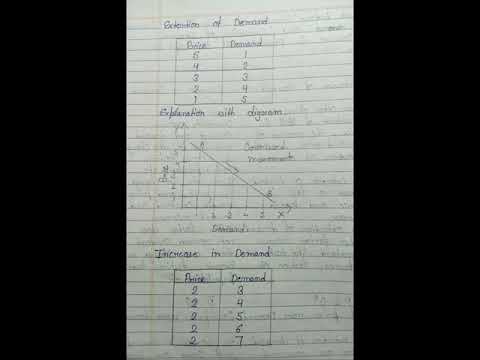 Extention of Demand
Price Demand
5 1
4 2
3 3
2 4
1 5
Explanation with digaram
Y
A
Downward
movement
B
X
Demand
Increase in Demand
Price Demand
2 3
2 4
2 5
2 6
2 7